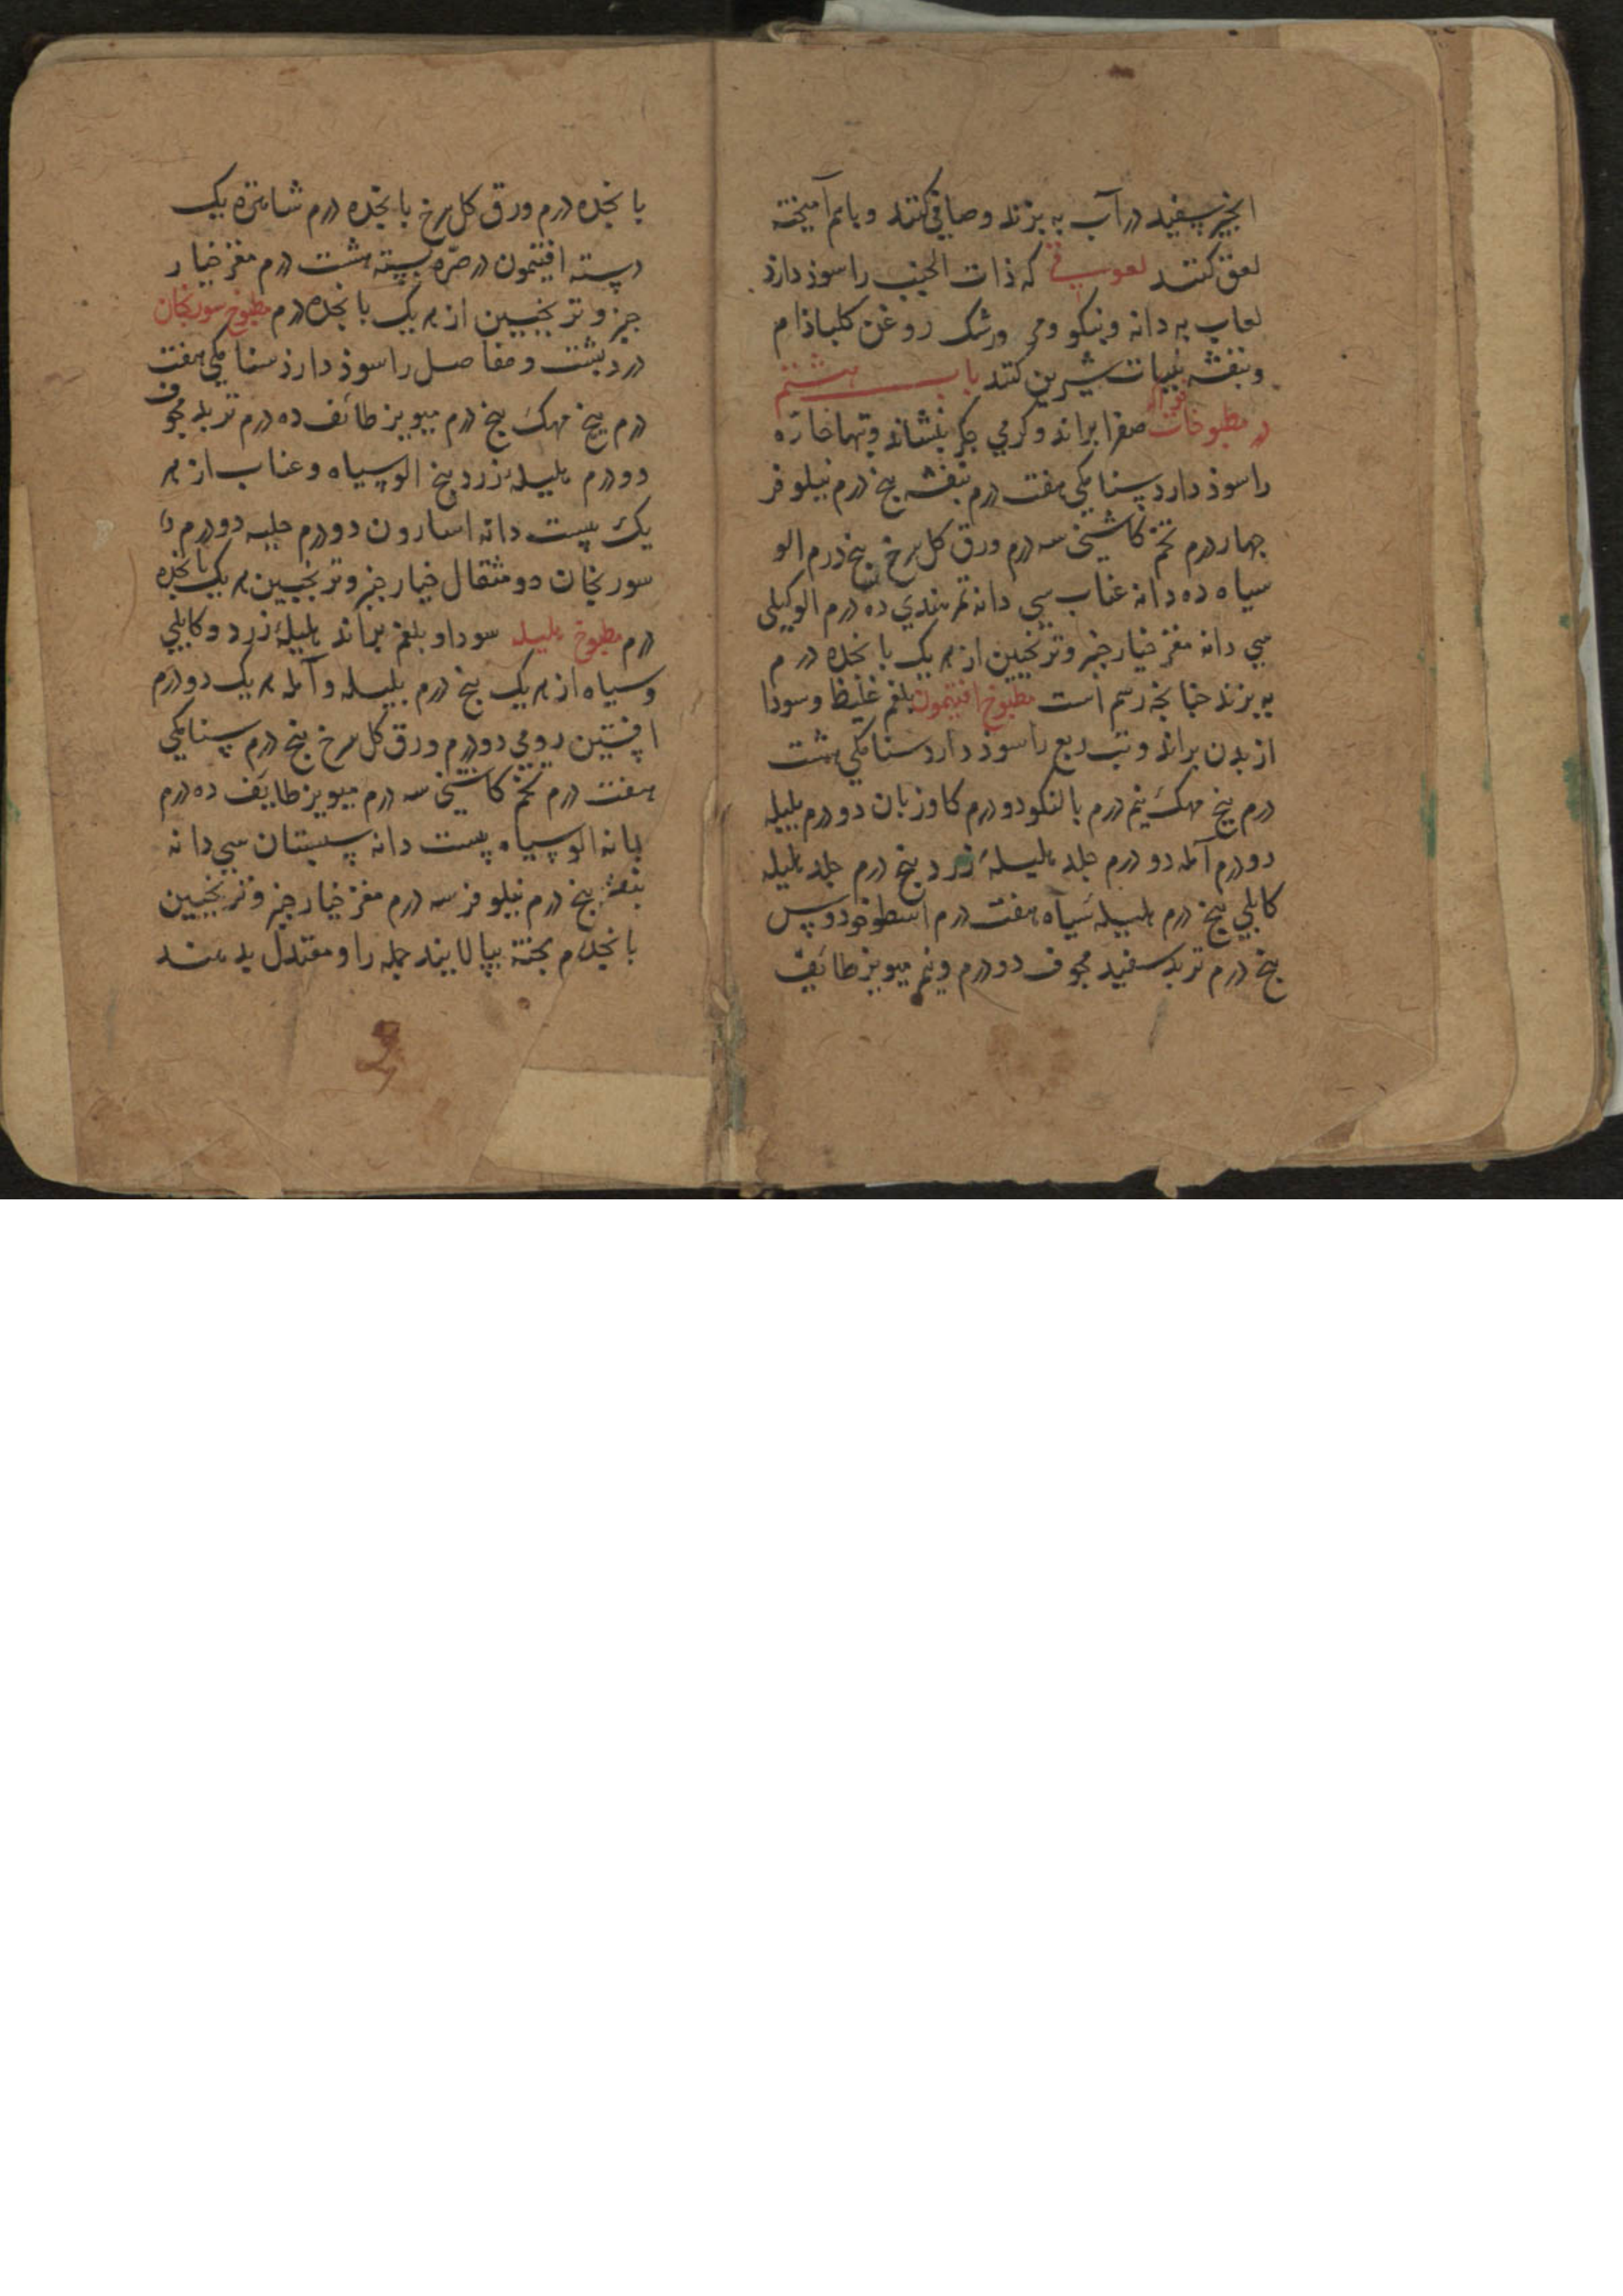 انجیر سپید در آب به بزند و صافی کنند و باهم آمیخته
لعق کنند لعوقی که ذات الجنب را سوذ دارذ
لعاب به دانه و نیکو ومی ورشک روغن کلباذام
و بنفشه بنبات شیرین کنند باب هشتم
در مطبوخات صفرا براند و کرمی جکر بنشاند و تبهاء حاره
را سوذ دارد سنا مکی هفت درم بنفشه بنج درم نیلوفر
جهار درم تخم کاسنی سه درم ورق کل سرخ بنج درم الو
سیاه ده دانه عناب سی دانه تمر هندی ده درم الو کیلی
سی دانه مغز خیار جنبر و ترنجبین از هر یک بانجده درم
به بزند جنانجه رسم است مطبوخ افتیمون بلغم غلیظ و سودا
از بدن براند و تب ربع را سوذ دارد سنا مکی هشت
درم بیخ مهک بنج درم بالنکو دو درم کاوزبان دو درم بلیله
دو درم آمله دو درم جلد هلیلهٔ زرد بنج درم جلد هلیله
کابلی بنج درم هلیله سیاه هفت درم اسطوخودوس
بنج درم تربد سفید مجوف دو درم و نیم میویز طائف
بانجده درم ورق کل سرخ بانجده درم شاهتره یک
دسته افتیمون در صره بسته هشت درم مغز خیار
جنبر و ترنجبین از هر یک بانجده درم مطبوخ سورنجان
درد بشت و مفاصل را سوذ دارذ سنا مکی هفت
درم بیخ مهک بنج درم میویز طائف ده درم تربد مجوف
دو درم هلیله زرد بنج الو سیاه و عناب از هر
یک بیست دانه اسارون دو درم حلبه دو درم
سورنجان دو مثقال خیار جنبر و ترنجبین هر یک بانجده
درم مطبوخ هلیله سودا و بلغم براند هلیلهٔ زرد و کابلی
و سیاه از هر یک بنج درم بلیله و آمله هر یک دو درم
افسنتین رومی دو درم ورق کل سرخ بنج درم سنا مکی
هفت درم تخم کاسنی سه درم میویز طایف ده درم
الو سیاه بیست دانه سپستان سی دانه
بنفشه بنج درم نیلوفر سه درم مغز خیار جنبر و ترنجبین
بانجده درم بخته بپالایند جمله را و معتدل بدهند